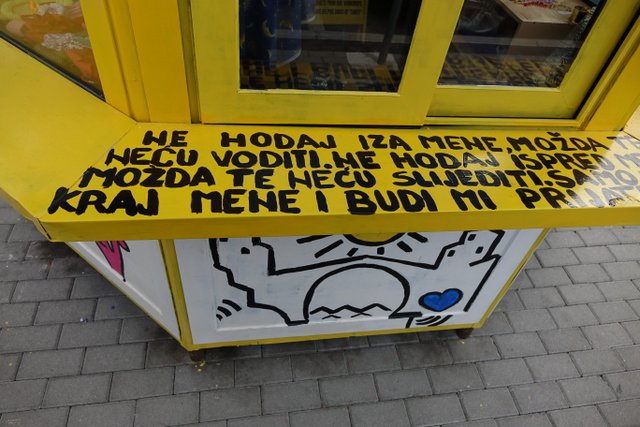 NE HODAJ IZA MENE, MOŽDA T
NEĆU VODITI. NE HODAJ ISPRED M
MOŽDA TE NEĆU SLIJEDITI. SAMO
KRAJ MENE I BUDI MI